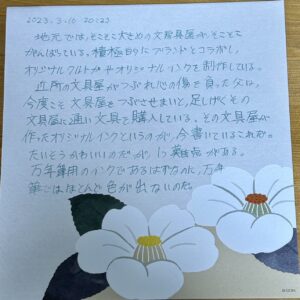 2023.3.10 20:23
地元では、そこそこ大きめの文房具屋が、そこそこ
がんばっている。積極的にブランドとコラボし、
オリジナルグルトガやオリジナルインクを制作している。
近所の文具屋がつぶれ心の傷を負った父は、
今度こそ文具屋をつぶさせまいと、足しげくその
文具屋に通い文具を購入している。その文具屋が
作ったオリジナルインクというのが、今書いているこれだ。
たいそうかわいいのだが、1つ難点がある。
万年筆用のインクであるはずなのに、万年
筆ではほとんど色が出ないのだ。